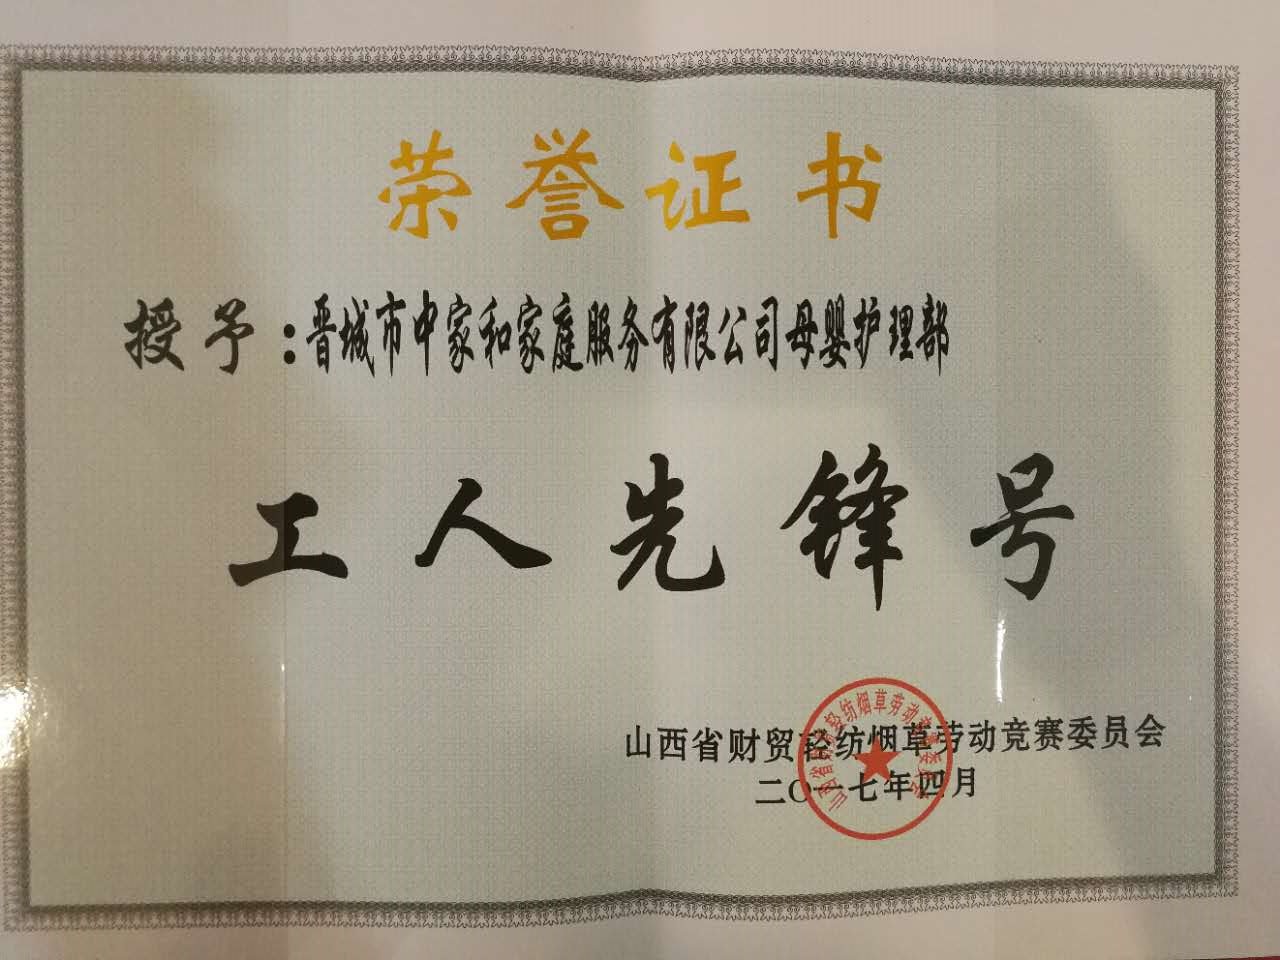 荣誉证书
授予:晋城市中家和家庭服务有限公司母婴护理部
工人先锋号
山西省财贸轻纺烟草劳动竞赛委员会
二〇一七年四月
山西省财贸轻纺烟草劳动竞赛委员会